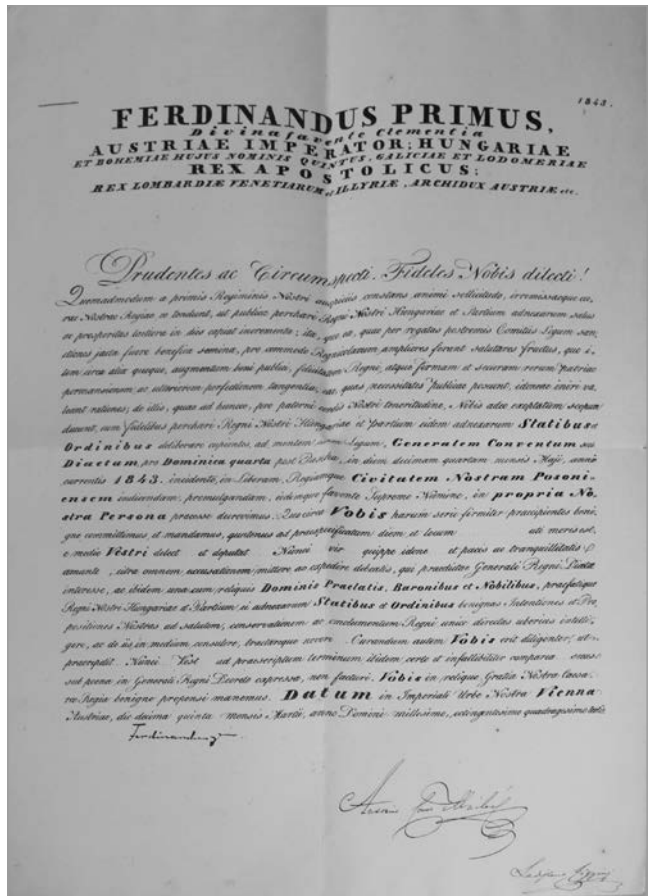 1843.
FERDINANDUS PRIMUS,
Divina favente Clementia
AUSTRIAE IMPERATOR; HUNGARIAE
ET BOHEMIAE HUJUS NOMINIS QUINTUS, GALICIAE ET LODOMERIAE
REX APOSTOLICUS;
REX LOMBARDIÆ VENETIARUM et ILLYRIÆ, ARCHIDUX AUSTRIÆ etc.
Prudentes ac Circumspecti. Fideles Nobis dilecti!
Quemadmodum a primis Regiminis Nostri auspiciis constans animi sollicitudo, irremissaeque cu-
rae Nostrae Regiae eo tendunt, ut publica perchari Regni Nostri Hungariae et Partium adnexarum salus
ac prosperitas laetiora in dies capiat incrementa; ita, que ea, quae per rogatas postremis Comitiis Legum san-
ctiones jacta fuere benefica semina, pro commodo Regnicolarum ampliores ferant salutares fructus, quo i-
tem circa alia quoque, augmentum boni publici, felicitatem Regni, atque firmam et securam rerum patriae
permansionem, ac ulteriorem perfectionem tangentia, eae, quas necessitates publicae poscunt, idoneae iniri va-
leant rationes; de illis, quae ad huncce, pro paterni cordis Nostri teneritudine, Nobis adeo exoptatum scopum
ducunt, cum fidelibus perchari Regni Nostri Hungariae et Partium eidem adnexarum Statibus et
Ordinibus deliberare cupientes, ad mentem Legum, Generalem Conventum seu
Diaetam, pro Dominica quarta post Pascha, in diem decimam quartam mensis Maji, anni
currentis 1843. incidente, in Liberam, Regiamque Civitatem Nostram Posoni-
ensem indicendam, promulgandam, ictenque favente Supremo Numine, in propria No-
stra Persona praeesse decrevimus. Quocirca Vobis harum serie firmiter praecipientes beni-
gne committimus, et mandamus, quatenus ad praespecificatum diem et locum uti moris est,
e medio Vestri delect et deputat Nunci vir quippe idone et pacis ac tranquillitatis
amante, citra omnem accusationem mittere ac expedire debeatis, qui praedictae Generali Regni Diaetae
interesse, ac ibidem una cum reliquis Dominis Praelatis, Baronibus et Nobilibus, praefatique
Regni Nostri Hungariae et Partium ei adnexarum Statibus et Ordinibus benignas Intentiones et Pro-
positiones Nostras, ad salutem, conservationem ac emolumentum Regni unice directas uberius intelli-
gere, ac de iis, in medium consulere, tractareque Curandum autem Vobis erit diligenter, ut
praeexpedit Nunci Vest ad praescriptum terminum ibidem certo et infallibiliter comparea
sub poena in Generali Regni Decreto expressa, non facturi. Vobis in reliquo Gratia Nostra Caesa-
reo Regia benigne propensi manemus. Datum in Imperiali Urbe Nostra Vienna
Austriae, die decima quinta mensis Martii, anno Domini millesimo, octingentesimo quadragesimo tertio
Ferdinandus